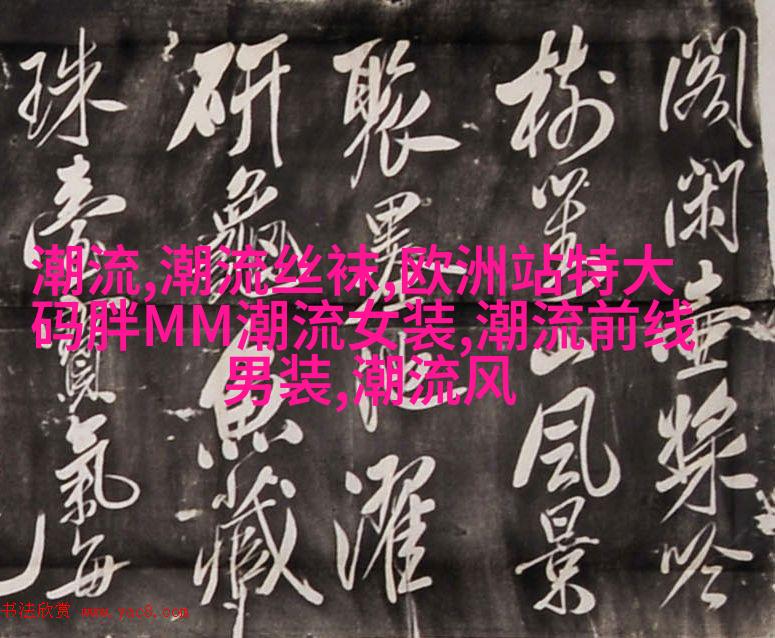 阁闲壶槳吟
樹
山風景
聚墨
池濯
研
魚藏
珠臺
寳氣每
潮流,潮流丝袜,欧洲站特大
码胖MM潮流女装,潮流前线
男装,潮流风
书法欣赏 www.yac8.com